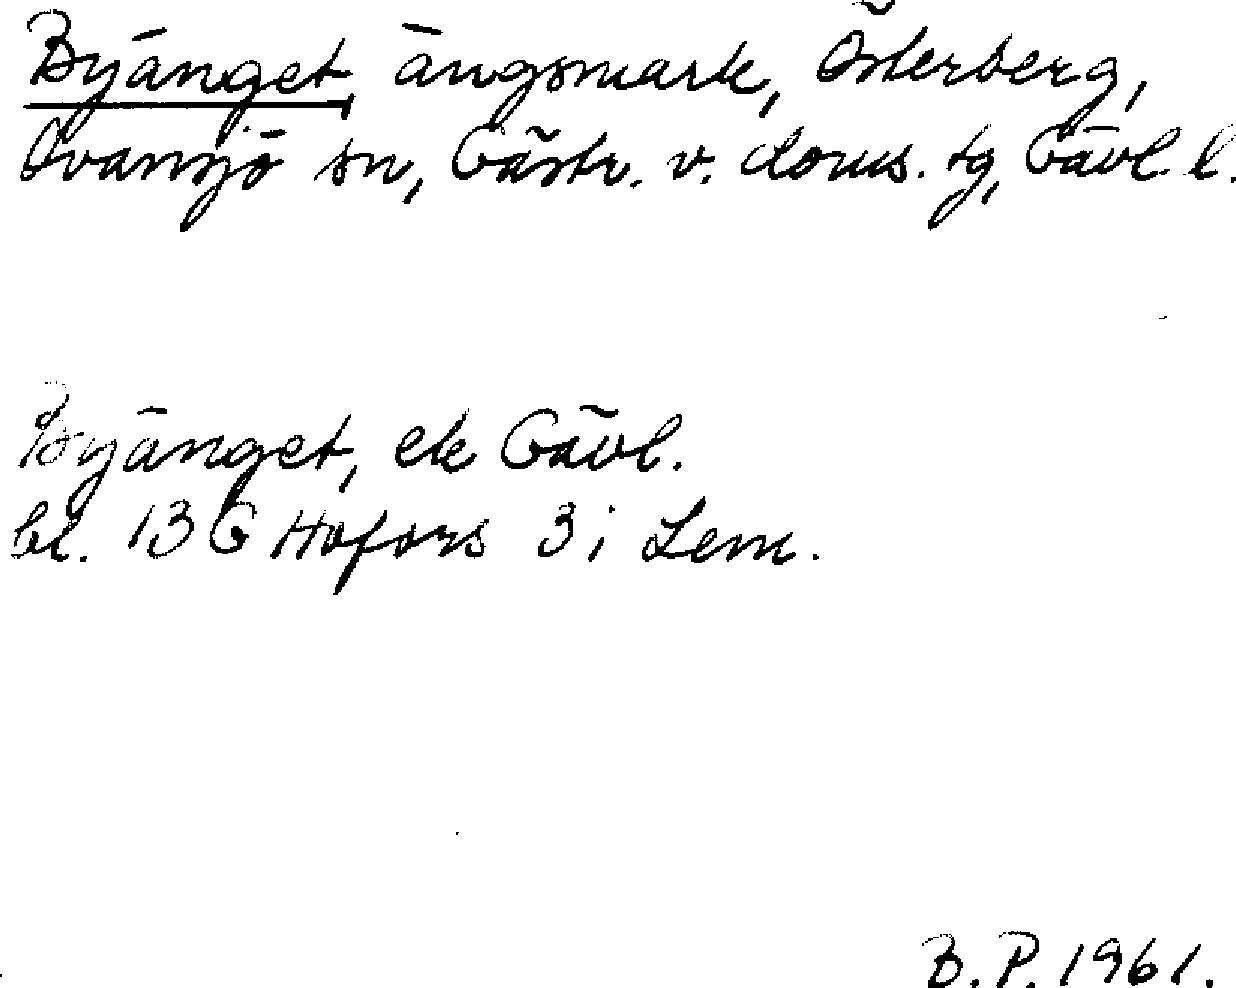 Byänget, ängsmark, Österberg,
Ovansjö sn, Gästr. v. doms. tg, Gävl. l.
Byänget, ek Gävl.
bl. 13 G Hofors 3 i Lem.
B. P. 1961.